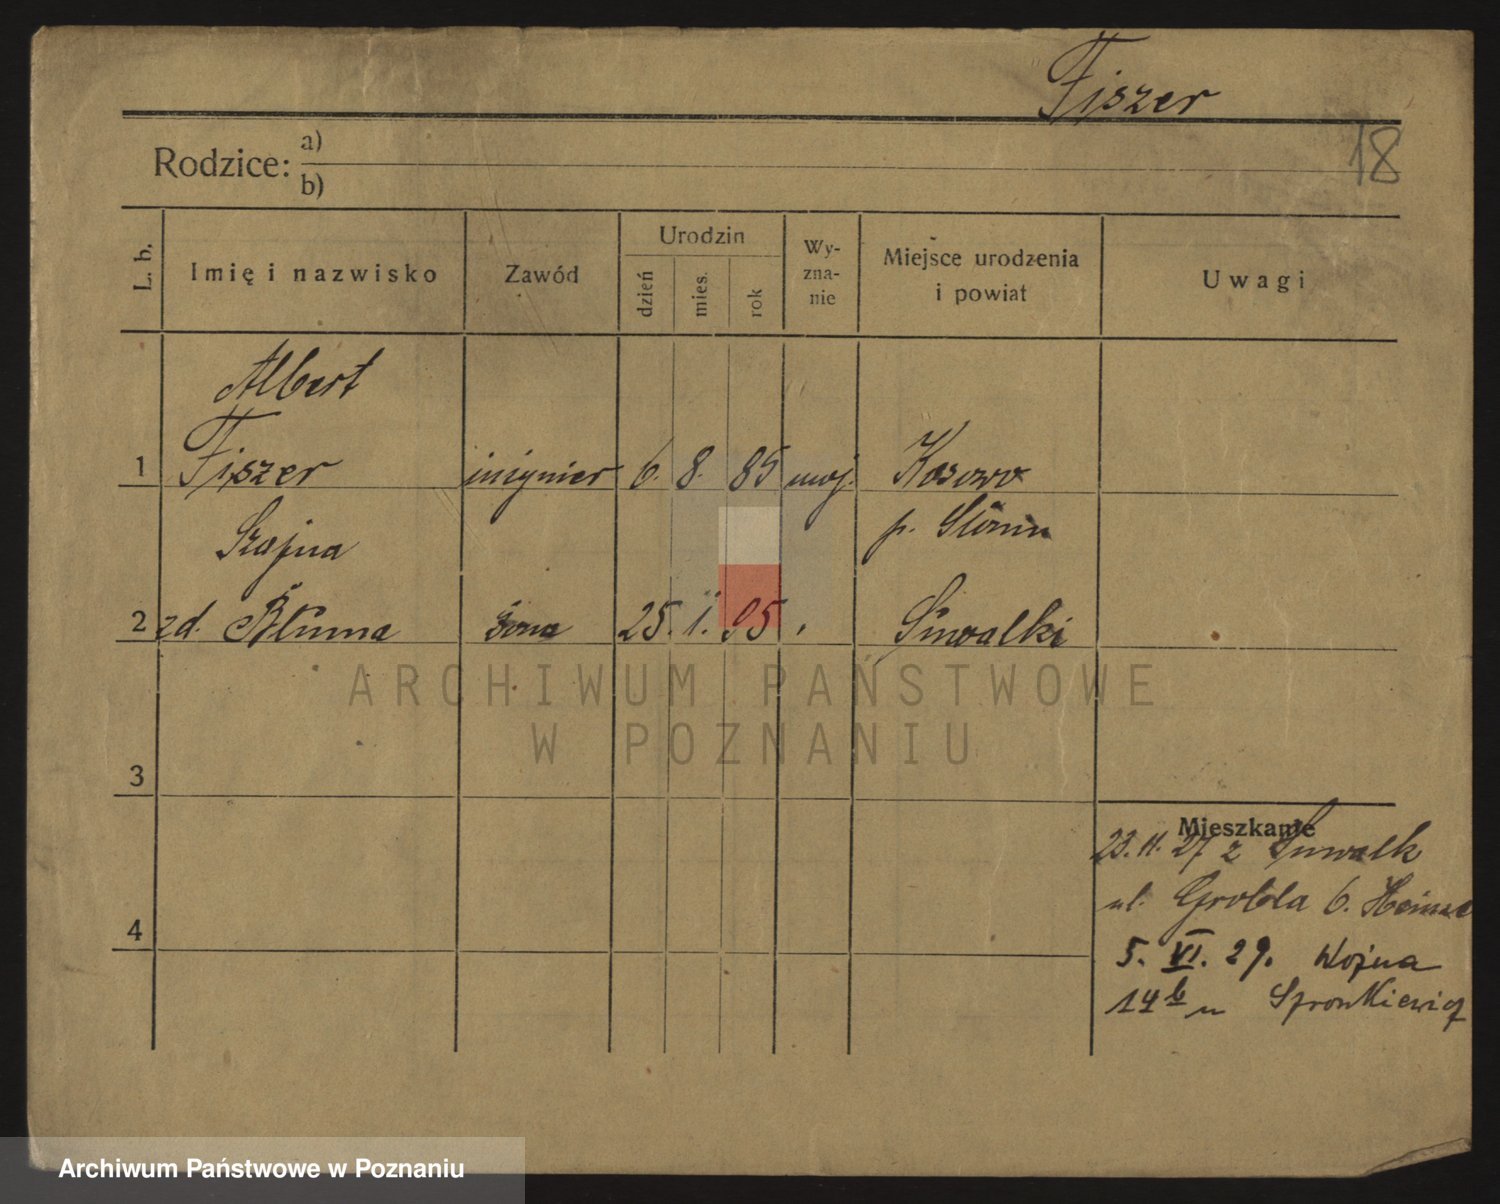 Fiszer
18
Rodzice: a)
b)
L. b.
Imię i nazwisko
Zawód
Urodzin
dzień
mies.
rok
Wy-
zna-
nie
Miejsce urodzenia
i powiat
Uwagi
Albert
1 Fiszer inżynier 6. 8. 85 moj. Kosowo
p. Słonim
Szajna
2 zd. Bluma żona 25. 1. 95 Suwalki
3
4
Mieszkanie
23. 11. 27 z Suwalk
ul. Grobla 6.
5. VI. 29. Wojna
14 b u
ARCHIWUM PAŃSTWOWE
W POZNANIU
Archiwum Państwowe w Poznaniu